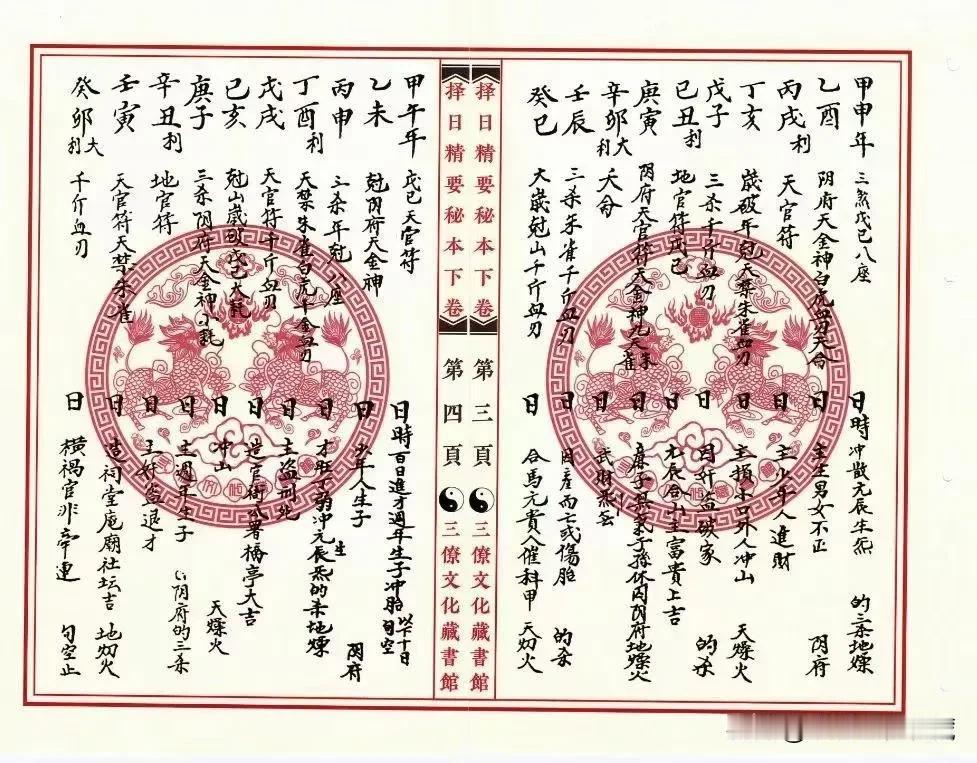 甲申年 三煞戊己八座 日時 冲散元辰生炁 的三杀地燥
乙酉 阴府天金神白虎血刃天命 日 主生男女不正 阴府
丙戌利 天官符 日 主少年人進財
丁亥 歲破年尅天禁朱雀血刃 日 主損小口外人冲山 天燥火
戊子 三殺千斤血刃 日 因奸盗破家 的杀
己丑利 地官符戊己 日 元辰合山主富貴上吉
庚寅 阴府天官符天金神九天朱雀 日 庶子悬弟子孫休囚阴府地燥火
辛卯大利 天命 日 武財炁
壬辰 三杀朱雀千斤血刃 日 因産而亡或傷胎 的杀
癸巳 大歲尅山千斤血刃 日 合馬元貴人催科甲 天灱火
择日精要秘本下卷
第三頁
三僚文化藏書館
择日精要秘本下卷
第四頁
三僚文化藏書館
甲午年 戊己天官符 日時 百日進才週年生子冲胎 以下十日旬空
乙未 尅阴府天金神 日 少年人生子 阴府
丙申 三杀年尅八座 日
丁酉利 天禁朱雀白虎千金血刃 日 才旺丁弱冲元辰生炁的杀地燥
戊戌 天官符千斤血刃 日 主盗刑死
己亥 尅山歲破戊己大耗 日 造官衙公署橋亭大吉
庚子 三杀阴府天金神小耗 日 冲山 天燥火
辛丑利 地官符 日 主週年生子 阴府的三杀
壬寅 天官符天禁朱雀 日 主奸盗退才
癸卯大利 千斤血刃 日 造祠堂庵廟社坛吉 地灱火
橫禍官非牽連 旬空止